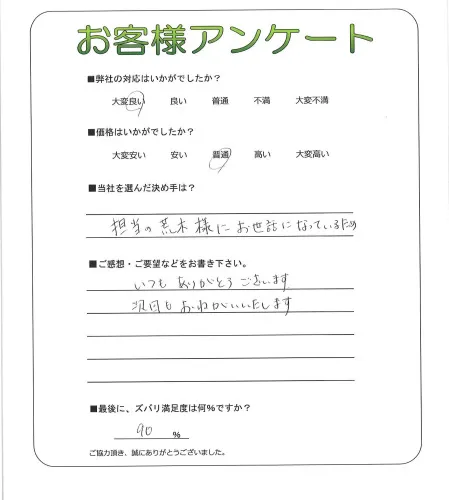 お客様アンケート
■弊社の対応はいかがでしたか？
大変良い 良い 普通 不満 大変不満
■価格はいかがでしたか？
大変安い 安い 普通 高い 大変高い
■当社を選んだ決め手は？
担当の荒木様にお世話になっているため
■ご感想・ご要望などをお書き下さい。
いつもありがとうございます
次回もおねがいいたします
■最後に、ズバリ満足度は何％ですか？
90 ％
ご協力頂き、誠にありがとうございました。